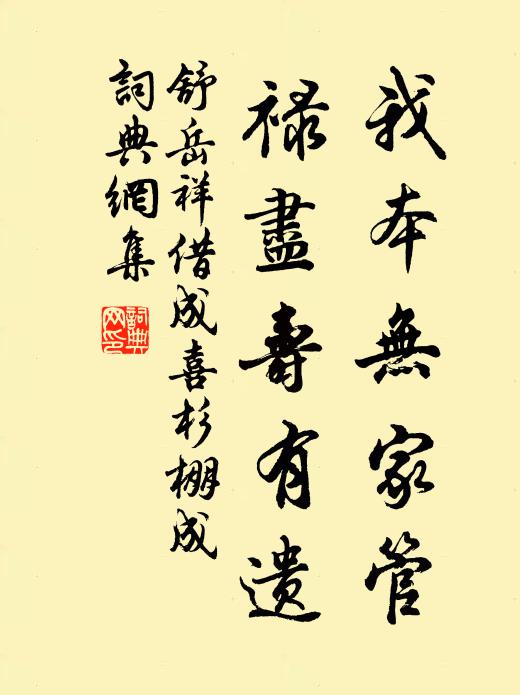 我本無家管
祿盡壽有遺
舒岳祥借成喜杉棚成
詞典網集
詞典網印